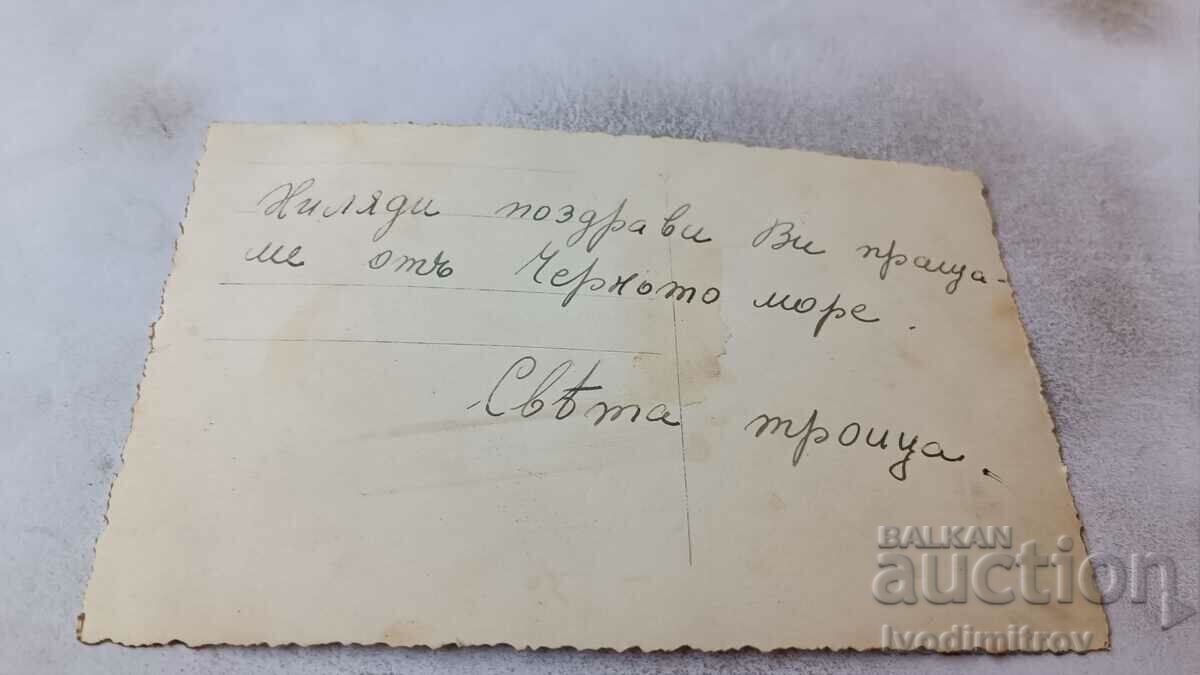 Хиляди поздрави Ви праща-
ме отъ Черното море.
Свѣта троица.
BALKAN
auction
Ivodimitrov